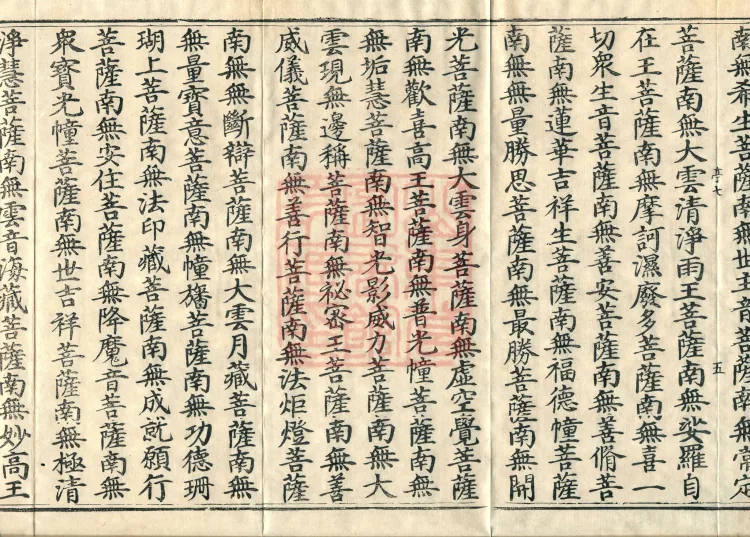 南無希生菩薩南無世主音菩薩南無常定
菩薩南無大雲清淨雨王菩薩南無娑羅自
在王菩薩南無摩訶濕廢多菩薩南無喜一
切衆生音菩薩南無善安菩薩南無善脩菩
薩南無蓮華吉祥生菩薩南無福德幢菩薩
南無無量勝思菩薩南無最勝菩薩南無開
光菩薩南無大雲身菩薩南無虛空覺菩薩
南無歡喜高王菩薩南無普光幢菩薩南無
無垢慧菩薩南無智光影威力菩薩南無大
雲現無邊稱菩薩南無祕密王菩薩南無善
威儀菩薩南無善行菩薩南無法炬燈菩薩
南無無斷辯菩薩南無大雲月藏菩薩南無
無量寶意菩薩南無幢旛菩薩南無功德珊
瑚上菩薩南無法印藏菩薩南無成就願行
菩薩南無安住菩薩南無降魔音菩薩南無
衆寶光幢菩薩南無世吉祥菩薩南無極清
淨慧菩薩南無雲音海藏菩薩南無妙高王